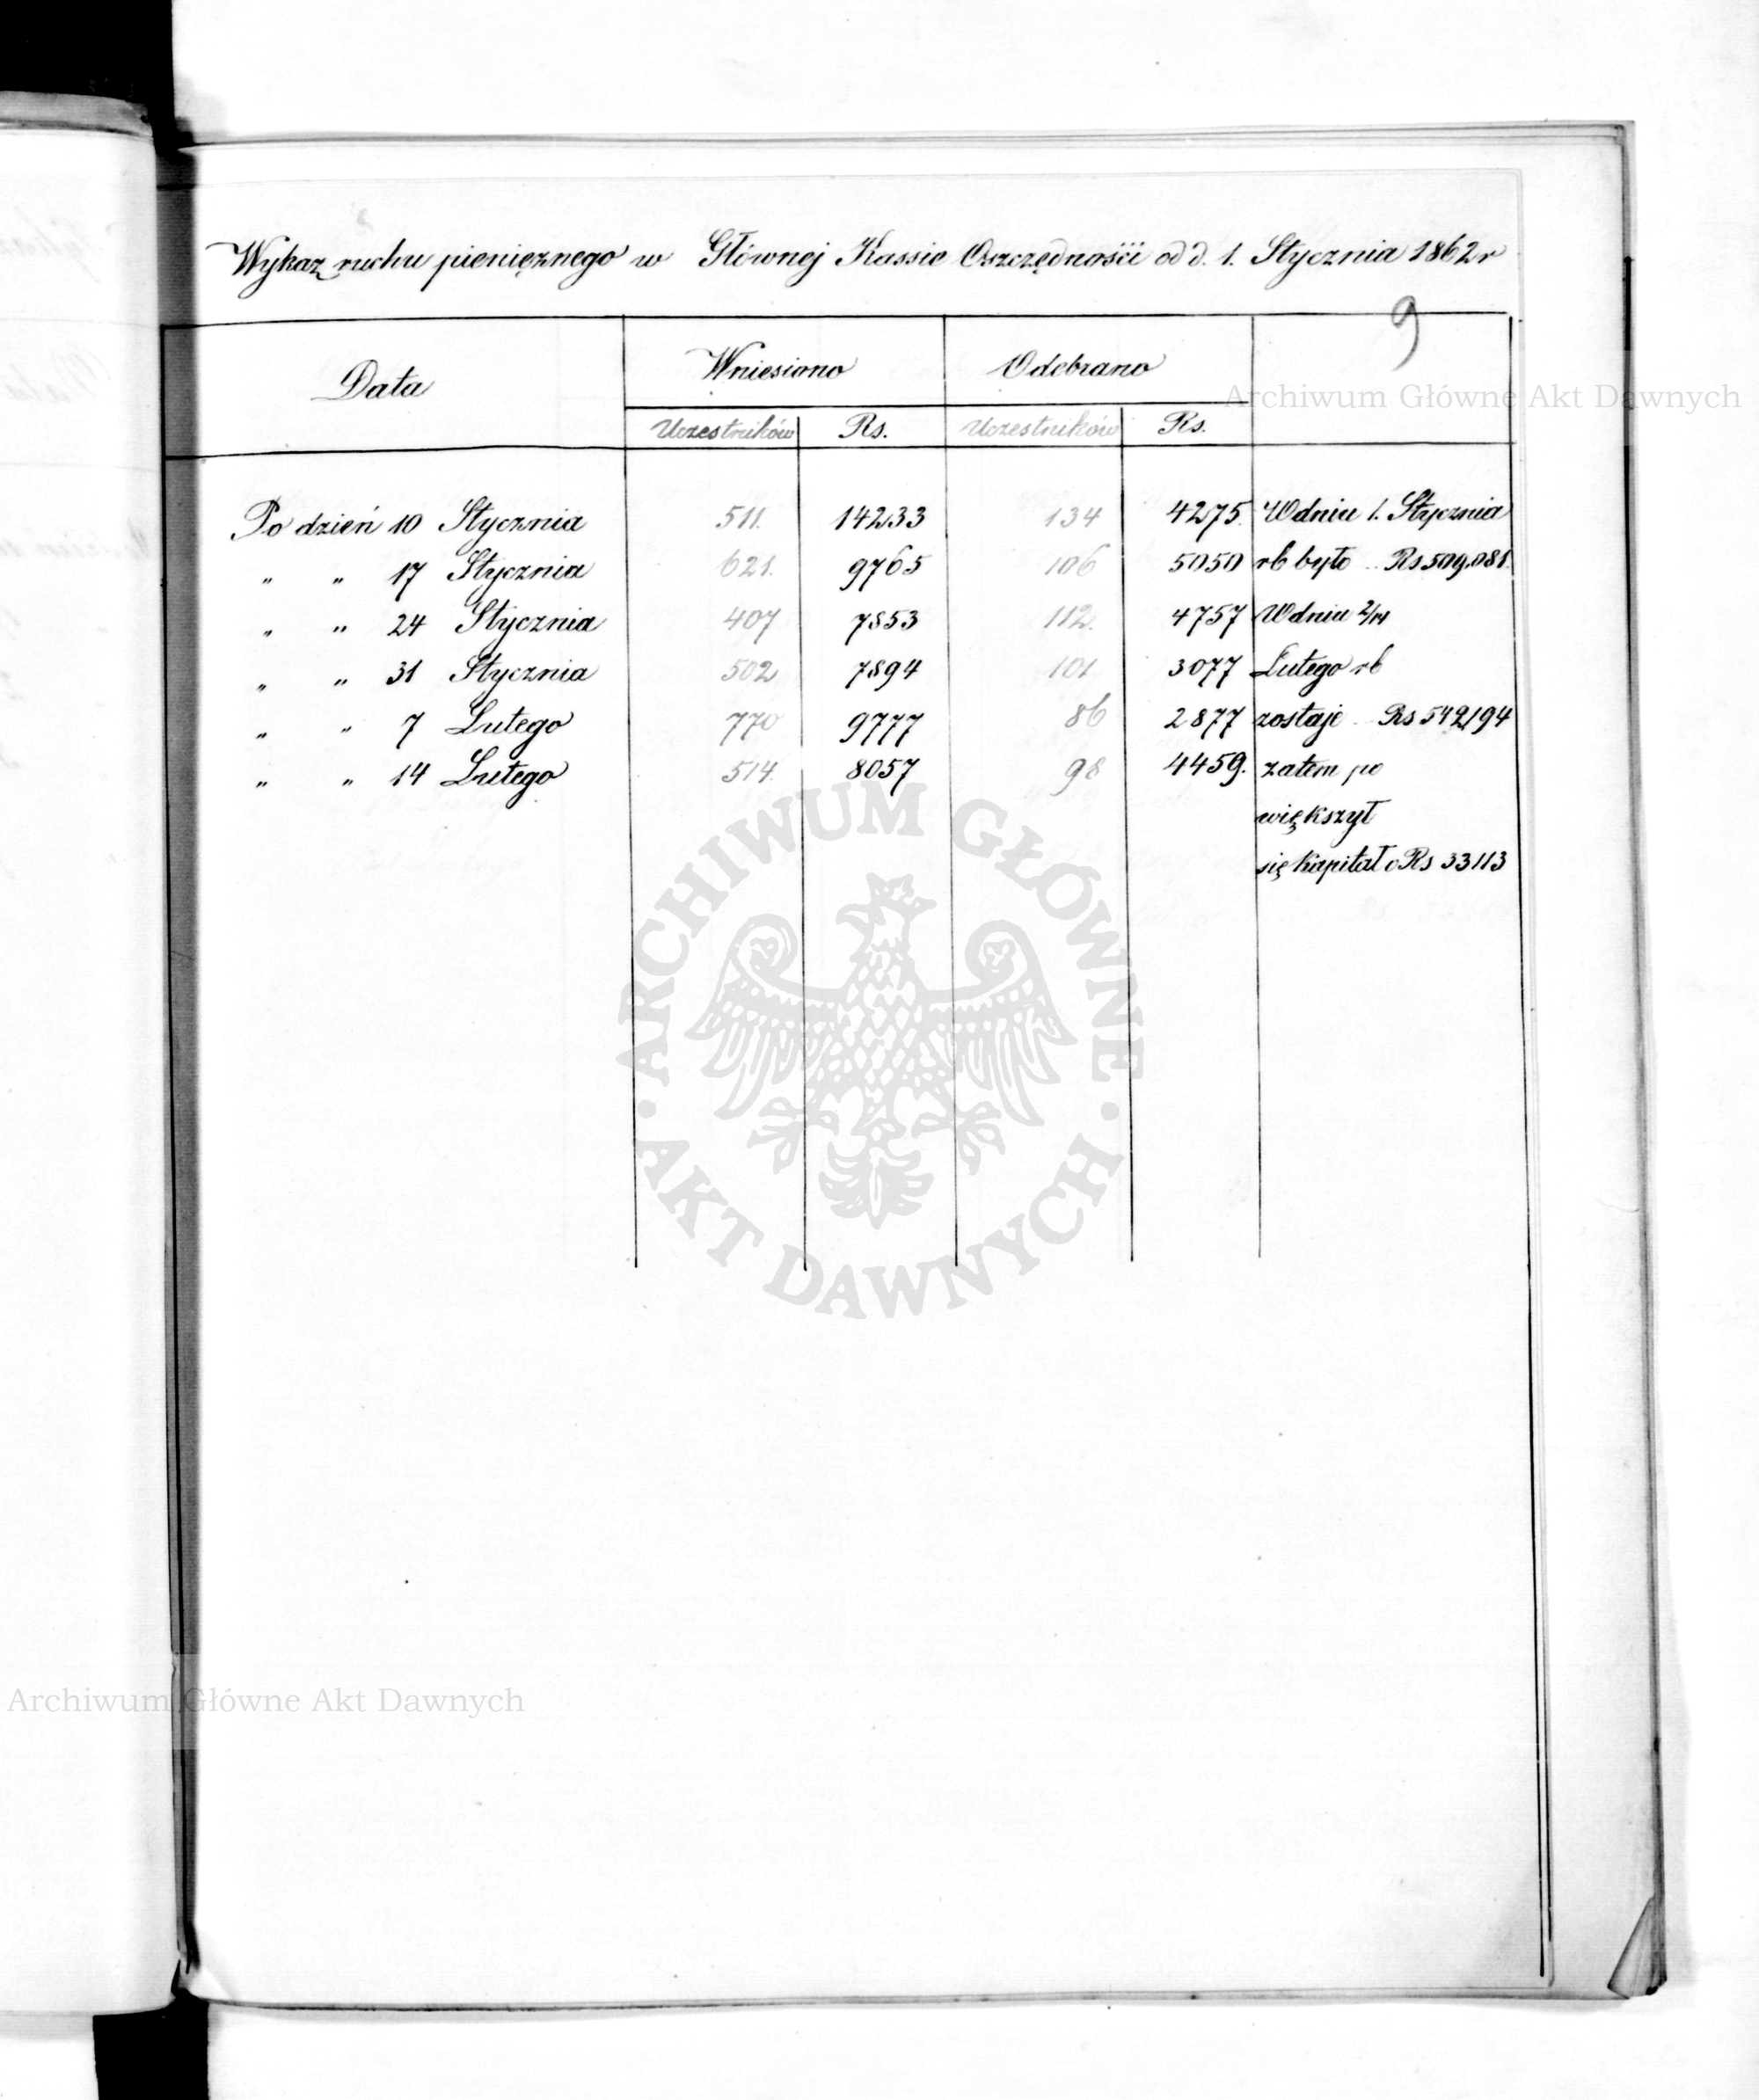 Wykaz ruchu pieniężnego w Głównej Kassie Oszczędności od d. 1. Stycznia 1862 r
9
Data Wniesiono Odebrano
Uczestników Rs. Uczestników Rs.
Po dzień 10 Stycznia 511. 14233 134 4275. W dniu 1. Stycznia
" " 17 Stycznia 621. 9765 106 5050 rb było .. Rs 509.081.
" " 24 Stycznia 407 7853 112. 4757 W dniu
" " 31 Stycznia 502 7894 101 3077 Lutego rb
" " 7 Lutego 770 9777 86 2877 zostaje .. Rs 542194
" " 14 Lutego 514. 8057 98 4459. zatem po
większył
się Kapitał o Rs 33113
Archiwum Główne Akt Dawnych
ARCHIWUM GŁÓWNE
· AKT DAWNYCH ·
Archiwum Główne Akt Dawnych